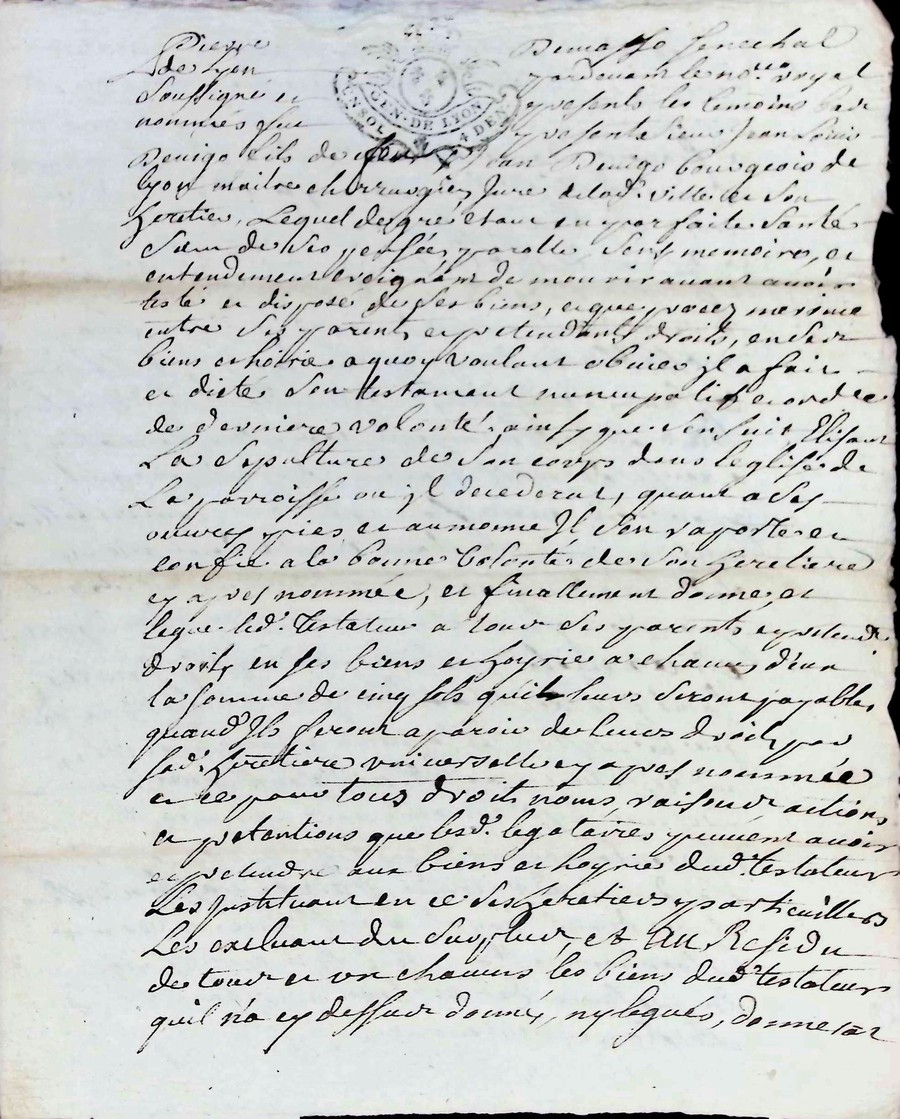 Pierre Demasso senechal
de Lyon pardevant le no.re royal
soussigné et presents les temoins bas
nommés fut present sieur Jean Louis
Devigo fils de feu Jean Devigo bourgeois de
Lyon maitre chirurgien juré de lad. ville et son
heretier, Lequel de gré etant en parfaite santé
sain de ses pensée, parolle, sens, memoire, et
entendement creignant de mourir avant avoir
testé et disposé de ses biens, et que procez ne vinne
entre ses parents et pretendants droits, en ses
biens et hoirie a quoy voulant obvier jl a fait
et dicté son testament nuncupatif et ordre
de derniere volonté ainsy que sensuit Elisant
La sepulture de son corps dans leglise de
La parroisse ou jl decederat, quant a ses
œuvres pies et aumonne Jl sen raporte et
confie a la bonne volonté de son heretiere
cy apres nommée, et finallement donne et
legue led. testateur a tous ses parents et pretend.
droits en ses biens et hoyrie a chacun d'eux
la somme de cinq sols qu'il leurs seront payables
quand Jls feront aparoir de leurs droits par
sad. heretiere universelle cy apres nommée
et ce pour tous droits noms, raisons actions
et pretantions que lesd. legataires peuvent avoir
et pretendre aux biens et hoyrie dud. testateur
Les Jnstituant en ce ses heretiers particuilliers
Les excluant du surplus, et au Residu
de tous et un chacuns les biens dud. testateur
qu'il n'a cy dessus donnés, ny legués, donne et
GEN. DE LYON
UN SOL 4 DEN.